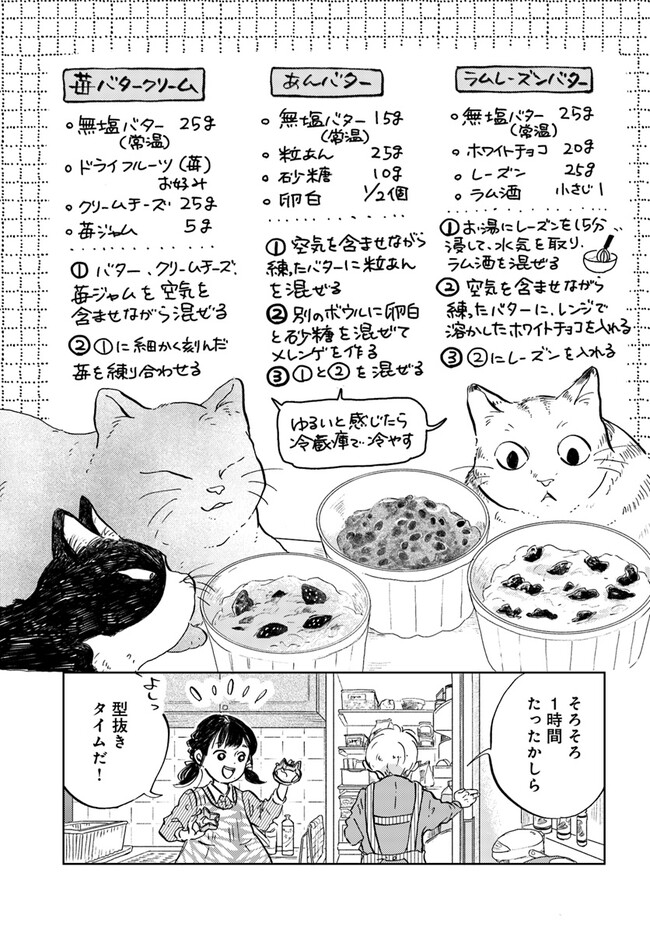 苺バタークリーム
・無塩バター 25g
(常温)
・ドライフルーツ(苺)
お好み
・クリームチーズ 25g
・苺ジャム 5g
①バター、クリームチーズ、
苺ジャムを空気を
含ませながら混ぜる
②①に細かく刻んだ
苺を練り合わせる
あんバター
・無塩バター 15g
(常温)
・粒あん 25g
・砂糖 10g
・卵白 1/2個
①空気を含ませながら
練ったバターに粒あん
を混ぜる
②別のボウルに卵白
と砂糖を混ぜて
メレンゲを作る
③①と②を混ぜる
ラムレーズンバター
・無塩バター 25g
(常温)
・ホワイトチョコ 20g
・レーズン 25g
・ラム酒 小さじ1
①お湯にレーズンを15分
浸して、水気を取り、
ラム酒を混ぜる
②空気を含ませながら
練ったバターに、レンジで
溶かしたホワイトチョコを入れる
③②にレーズンを入れる
ゆるいと感じたら
冷蔵庫で冷やす
そろそろ
1時間
たったかしら
よしっ
型抜き
タイムだ！